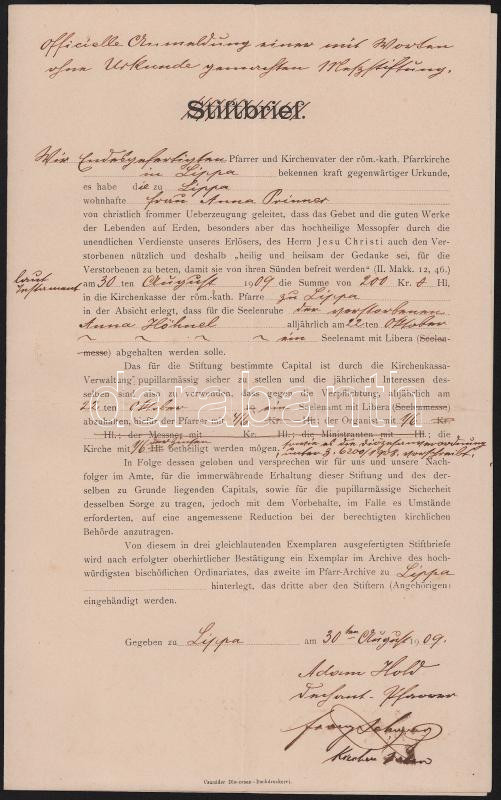 Officielle Anmeldung einer mit Worten
ohne Urkunde gemachten Meßstiftung.
Stiftbrief.
Wir Endesgefertigten Pfarrer und Kirchenvater der röm.-kath. Pfarrkirche
in Lippa bekennen kraft gegenwärtiger Urkunde,
es habe die zu Lippa
wohnhafte Frau Anna Prinner
von christlich frommer Ueberzeugung geleitet, dass das Gebet und die guten Werke
der Lebenden auf Erden, besonders aber das hochheilige Messopfer durch die
unendlichen Verdienste unseres Erlösers, des Herrn Jesu Christi auch den Ver-
storbenen nützlich und deshalb „heilig und heilsam der Gedanke sei, für die
Verstorbenen zu beten, damit sie von ihren Sünden befreit werden“ (II. Makk. 12, 46.)
laut Testament
am 30 ten August 1909 die Summe von 200 Kr. Hl.
in die Kirchenkasse der röm.-kath. Pfarre zu Lippa
in der Absicht erlegt, dass für die Seelenruhe der verstorbenen
Anna Höhnel alljährlich am 22 ten Oktober
ein Seelenamt mit Libera (Seelen-
messe) abgehalten werden solle.
Das für die Stiftung bestimmte Capital ist durch die Kirchenkassa-
Verwaltung pupillarmässig sicher zu stellen und die jährlichen Interessen des-
selben sind also zu verwenden, dass gegen die Verpflichtung, alljährlich am
22 ten Oktober ein Seelenamt mit Libera (Seelenmesse)
abzuhalten, hiefür der Pfarrer mit Kr. Hl.; der Organist mit Kr.
Hl.; der Messner mit Kr. Hl.; die Ministranten mit Hl.; die
Kirche mit Hl. betheiligt werden mögen.
In Folge dessen geloben und versprechen wir für uns und unsere Nach-
folger im Amte, für die immerwährende Erhaltung dieser Stiftung und des der-
selben zu Grunde liegenden Capitals, sowie für die pupillarmässige Sicherheit
desselben Sorge zu tragen, jedoch mit dem Vorbehalte, im Falle es Umstände
erforderten, auf eine angemessene Reduction bei der berechtigten kirchlichen
Behörde anzutragen.
Von diesem in drei gleichlautenden Exemplaren ausgefertigten Stiftbriefe
wird nach erfolgter oberhirtlicher Bestätigung ein Exemplar im Archive des hoch-
würdigsten bischöflichen Ordinariates, das zweite im Pfarr-Archive zu Lippa
hinterlegt, das dritte aber den Stiftern (Angehörigen)
eingehändigt werden.
Gegeben zu Lippa am 30 ten August 1909.
Adam Hold
Dechant-Pfarrer
Csanáder Diöcesan-Buchdruckerei.
darabanth